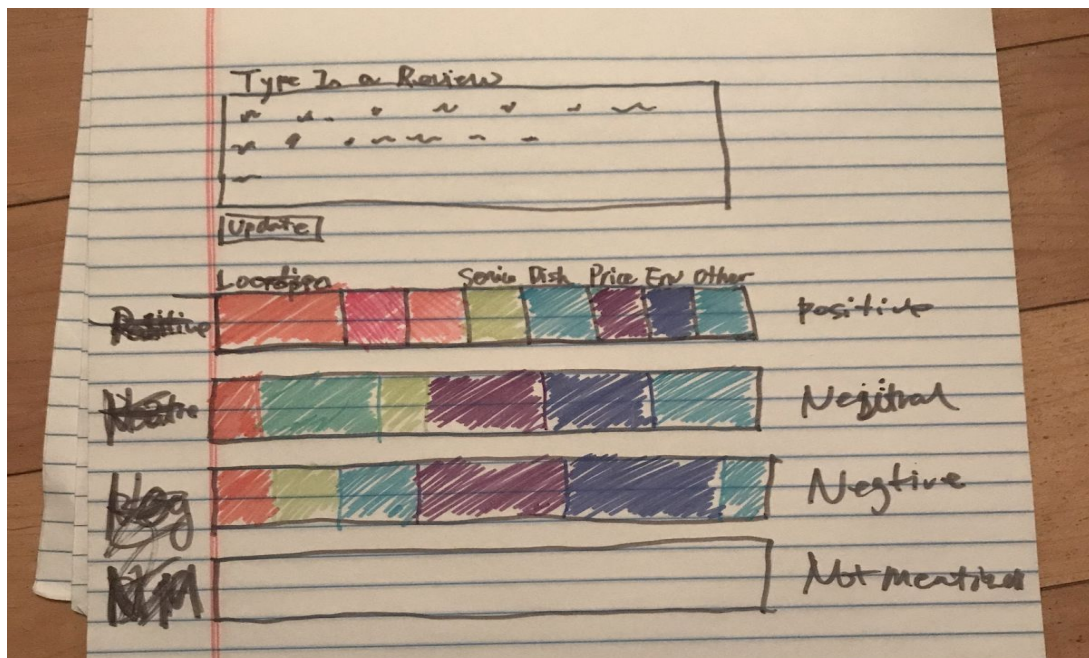 Type In a Review
Update
Location Service Dish Price Env Other
positive
Negitral
Negtive
Not mentioned